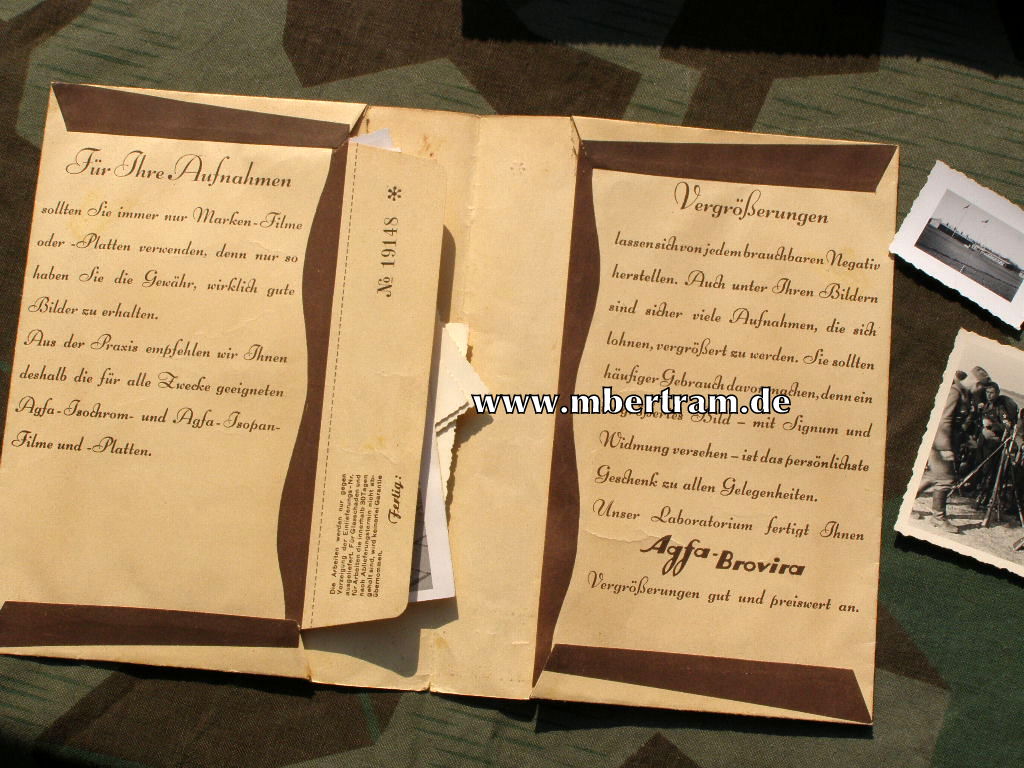 Für Ihre Aufnahmen
sollten Sie immer nur Marken-Filme
oder -Platten verwenden, denn nur so
haben Sie die Gewähr, wirklich gute
Bilder zu erhalten.
Aus der Praxis empfehlen wir Ihnen
deshalb die für alle Zwecke geeigneten
Agfa-Isochrom- und Agfa-Isopan-
Filme und -Platten.
№ 19148 *
Die Arbeiten werden nur gegen
Vorzeigung der Einlieferungs-Nr.
ausgeliefert. Für Glasschäden und
für Arbeiten die innerhalb 30 Tagen
nach Ablieferungstermin nicht ab-
geholt sind, wird keinerlei Garantie
übernommen.
Fertig:
Vergrößerungen
lassen sich von jedem brauchbaren Negativ
herstellen. Auch unter Ihren Bildern
sind sicher viele Aufnahmen, die sich
lohnen, vergrößert zu werden. Sie sollten
häufiger Gebrauch davon machen, denn ein
Bild – mit Signum und
Widmung versehen – ist das persönlichste
Geschenk zu allen Gelegenheiten.
Unser Laboratorium fertigt Ihnen
Agfa-Brovira
Vergrößerungen gut und preiswert an.
www.mbertram.de